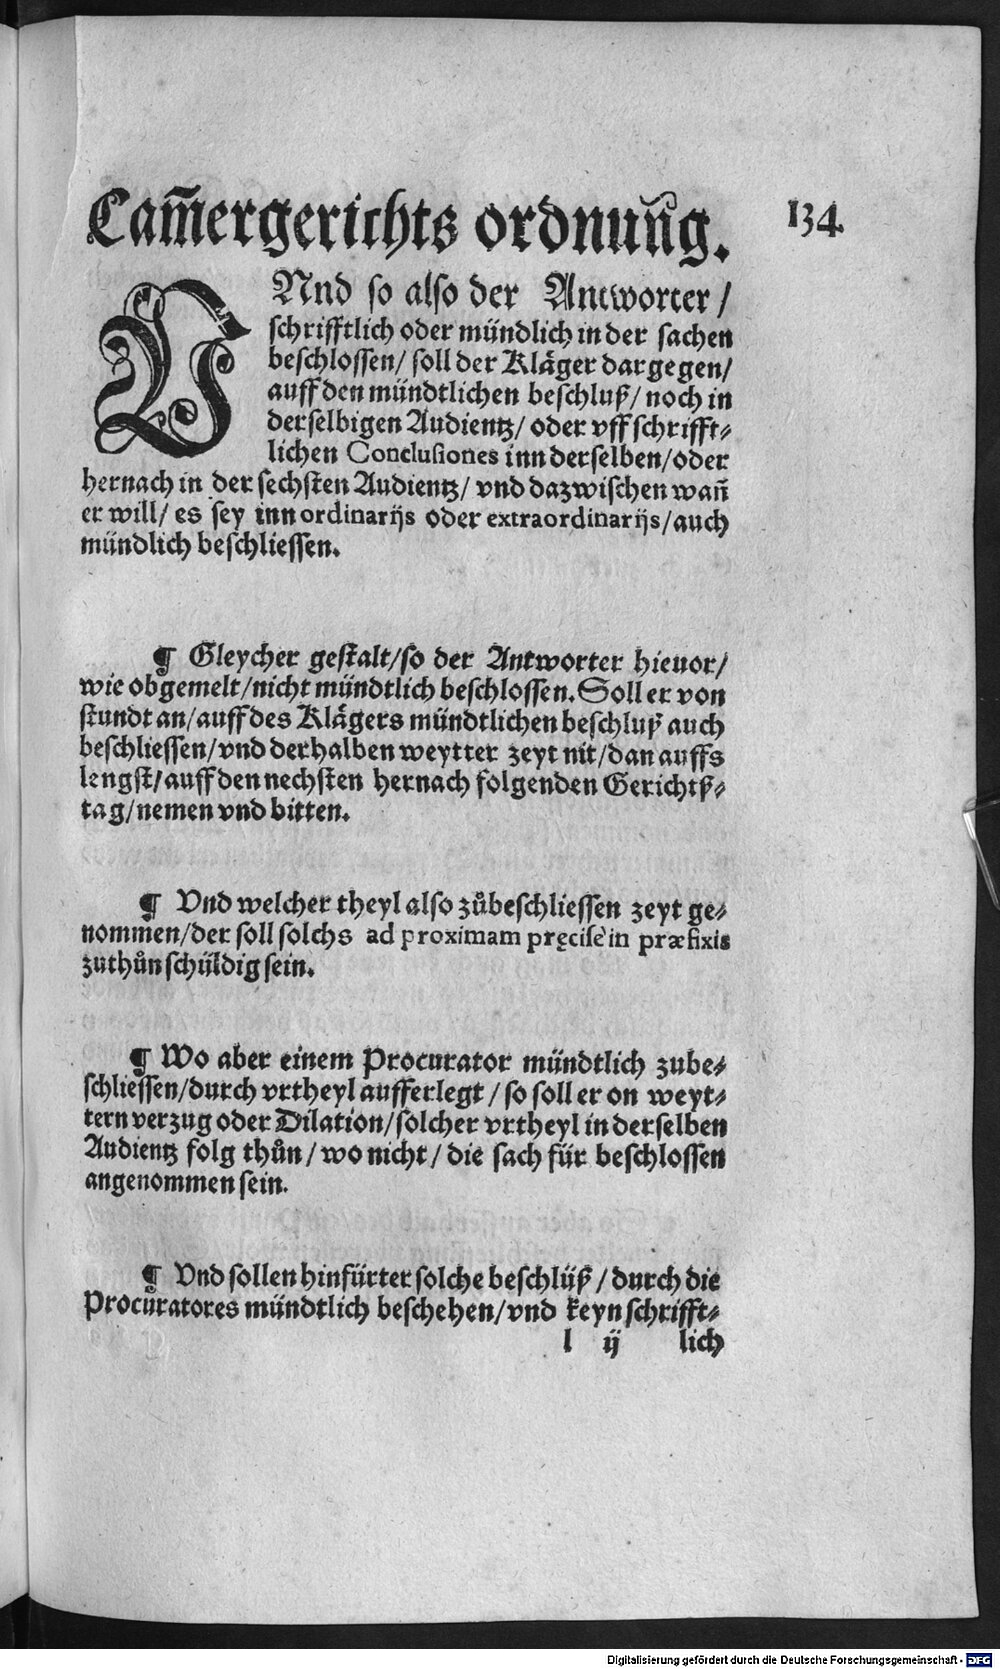 Cam̄ergerichts ordnūng.
134.
VNnd so also der Antworter /
schrifftlich oder mündlich in der sachen
beschlossen / soll der Kläger dargegen /
auff den mündtlichen beschluß / noch in
derselbigen Audientz / oder vff schrifft⸗
lichen Conclusiones inn derselben / oder
hernach in der sechsten Audientz / vnd dazwischen wañ
er will / es sey inn ordinarijs oder extraordinarijs / auch
mündlich beschliessen.
¶ Gleycher gestalt / so der Antworter hieuor /
wie obgemelt / nicht mündtlich beschlossen. Soll er von
stundt an / auff des Klägers mündtlichen beschluß auch
beschliessen / vnd derhalben weytter zeyt nit / dan auffs
lengst / auff den nechsten hernach folgenden Gerichtß⸗
tag / nemen vnd bitten.
¶ Vnd welcher theyl also zůbeschliessen zeyt ge⸗
nommen / der soll solchs ad proximam pręcisè in præfixis
zuthůn schüldig sein.
¶ Wo aber einem Procurator mündtlich zube⸗
schliessen / durch vrtheyl aufferlegt / so soll er on weyt⸗
tern verzug oder Dilation / solcher vrtheyl in derselben
Audientz folg thůn / wo nicht / die sach für beschlossen
angenommen sein.
¶ Vnd sollen hinfürter solche beschlüß / durch die
Procuratores mündtlich beschehen / vnd keyn schrifft⸗
l ij lich
Digitalisierung gefördert durch die Deutsche Forschungsgemeinschaft - DFG